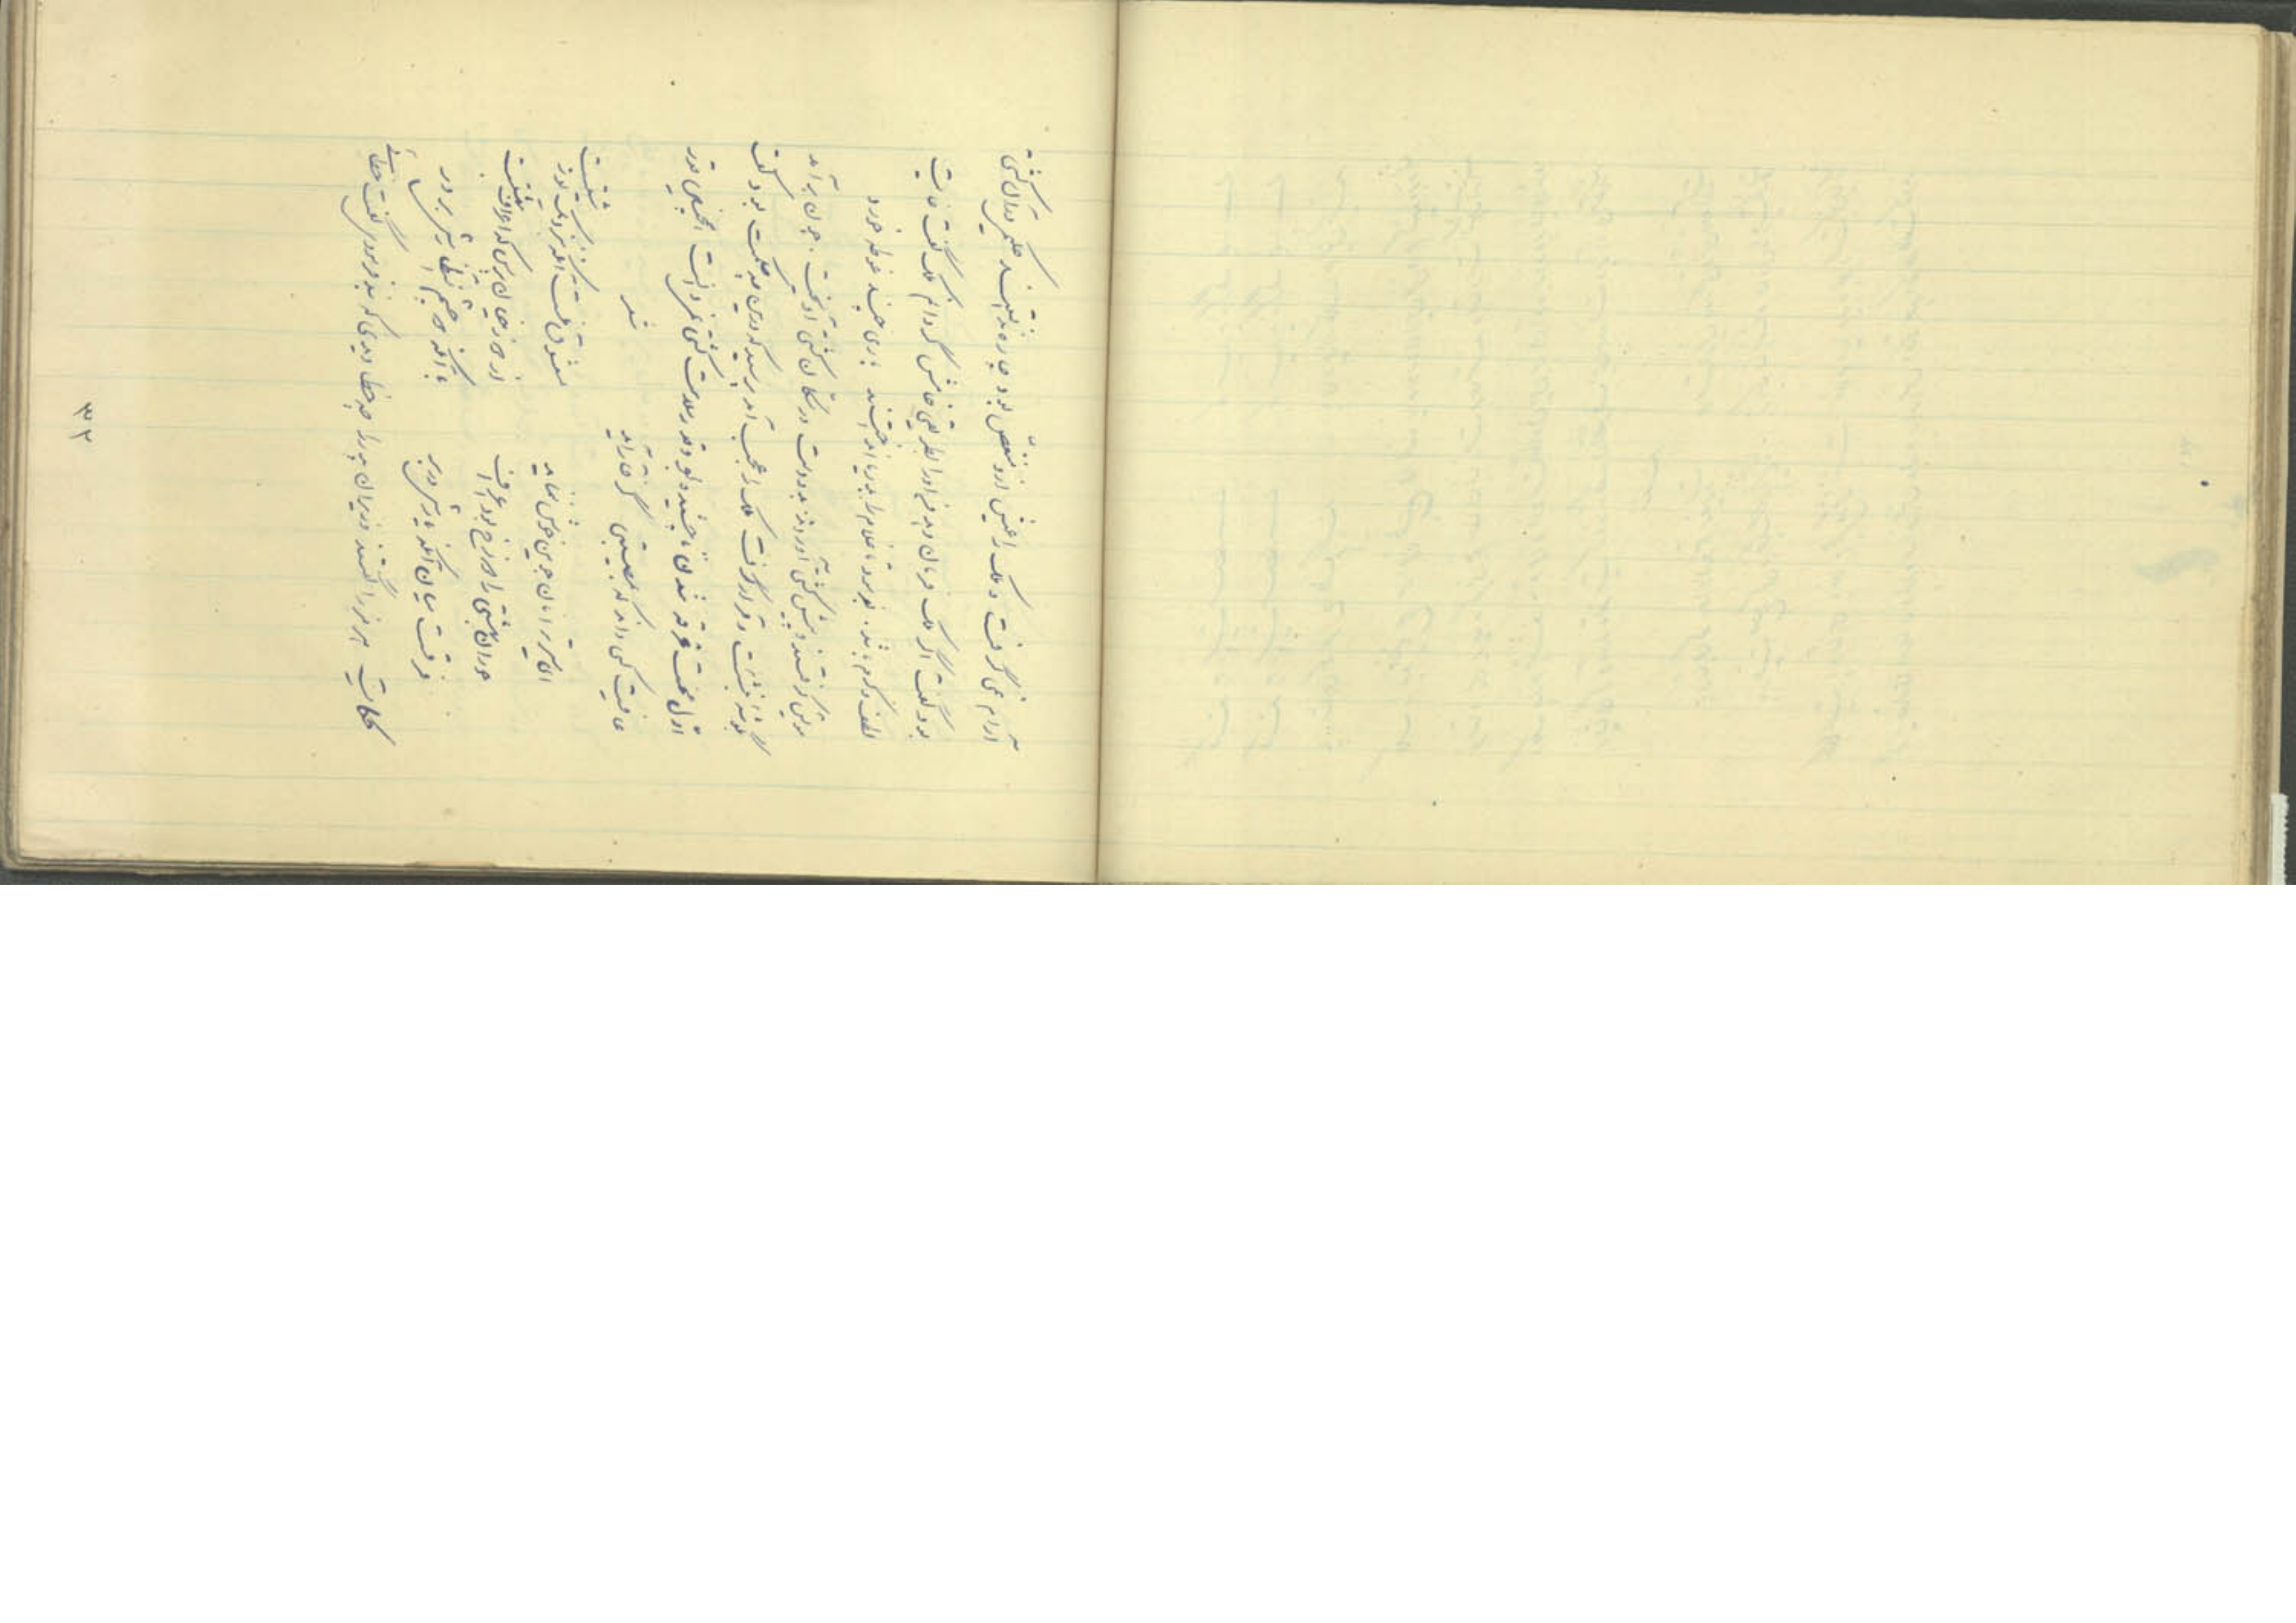 آرام نمی گرفت و ملک را عیش ازو منغص بود چاره ندانستند حکیمی در آن کشتی
بود گفت اگر ملک فرمان دهد من او را بطریقی خامش گردانم ملک گفت غایت
لطف و کرم باشد بفرمود تا غلام را بدریا انداختند باری چند غوطه خورد
مویش گرفتند و پیش کشتی آوردند بدو دست در سکان کشتی آویخت چون برآمد
بگوشه بنشست و قرار گرفت ملک را عجب آمد پرسید که درین چه حکمت بود گفت
اول محنت غرقه شدن ناچشیده بود و قدر سلامت کشتی نمی دانست همچنین قدر
عافیت کسی داند که بمصیبتی گرفتار آید
شعر
ای سیر ترا نان جوین خوش ننماید معشوق منست آنکه بنزدیک تو زشتست
حوران بهشتی را دوزخ بود اعراف از دوزخیان پرس که اعراف بهشتست
فرقست میان آنکه یارش در بر با آنکه دو چشم انتظارش بر در
حکایت هرمز را گفتند وزیران پدر را چه خطا دیدی که بند فرمودی گفت خطائی
۳۲